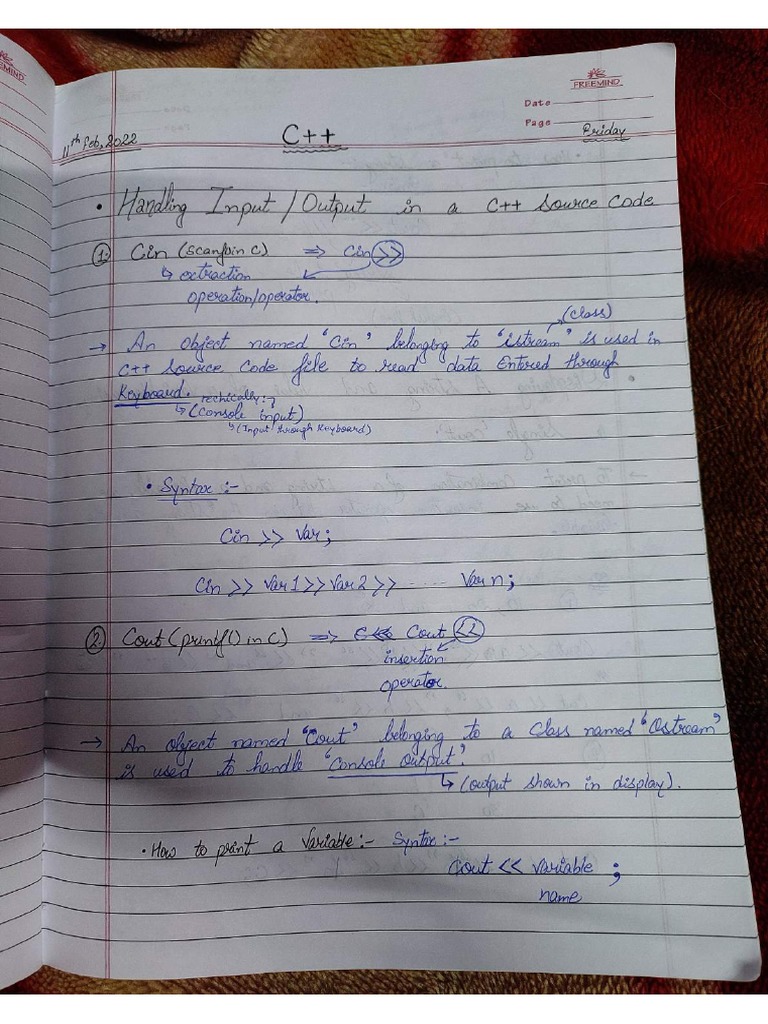 EEMIND
FREEMIND
Date
Page
11th Feb, 2022
C++
Friday
• Handling Input / Output in a C++ Source Code
1. Cin (scanf() in C) ⇒ Cin >>
↳ extraction
operation/operator.
(class)
→ An object named "Cin" belonging to "istream" is used in
C++ Source Code file to read data Entered through
Keyboard. techically:-
↳ (Console input)
↳ (Input through Keyboard)
• Syntax :-
Cin >> Var;
Cin >> Var1 >> Var2 >> ..... Var n;
2. Cout (printf() in C) ⇒ Cout <<
insertion
operator.
→ An object named "Cout" belonging to a Class named "Ostream"
is used to handle "Console Output".
↳ (output shown in display).
• How to print a Variable :- Syntax :-
Cout << variable ;
name